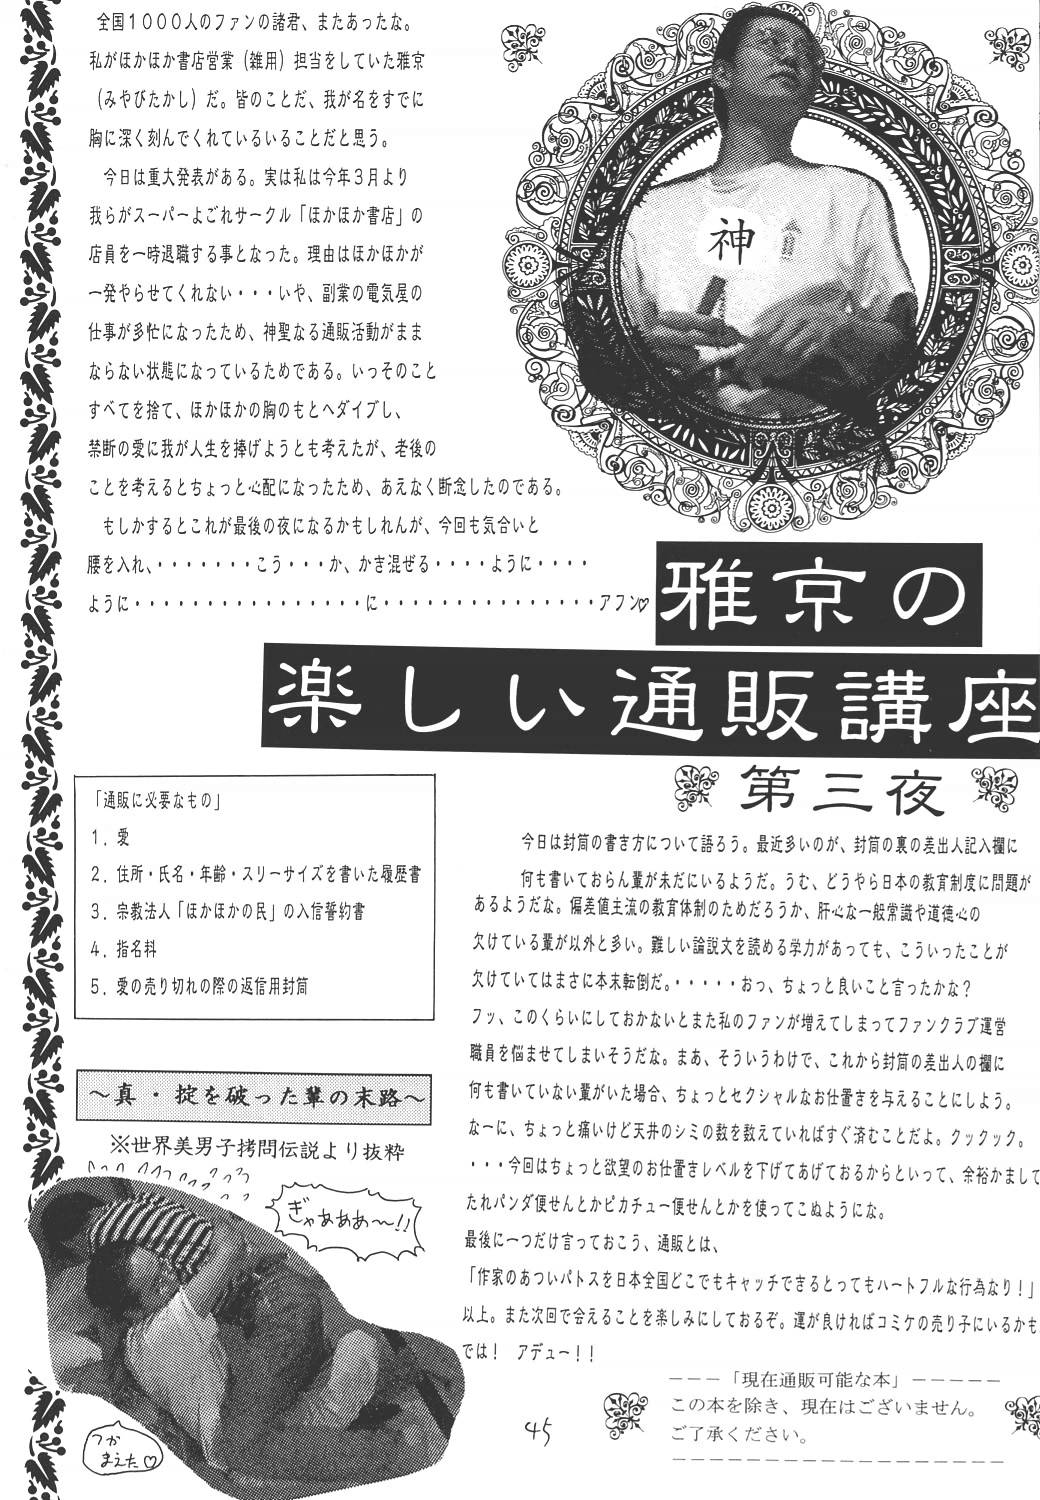 全国1000人のファンの諸君、またあったな。
私がほかほか書店営業（雑用）担当をしていた雅京
（みやびたかし）だ。皆のことだ、我が名をすでに
胸に深く刻んでくれているいることだと思う。
今日は重大発表がある。実は私は今年3月より
我らがスーパーよごれサークル「ほかほか書店」の
店員を一時退職する事となった。理由はほかほかが
一発やらせてくれない・・・いや、副業の電気屋の
仕事が多忙になったため、神聖なる通販活動がまま
ならない状態になっているためである。いっそのこと
すべてを捨て、ほかほかの胸のもとへダイブし、
禁断の愛に我が人生を捧げようとも考えたが、老後の
ことを考えるとちょっと心配になったため、あえなく断念したのである。
もしかするとこれが最後の夜になるかもしれんが、今回も気合いと
腰を入れ、・・・・・・・こう・・・か、かき混ぜる・・・・ように・・・・
ように・・・・・・・・・・・・・・・・に・・・・・・・・・・・・・・・アフン♡
神
雅京の
楽しい通販講座
第三夜
「通販に必要なもの」
1．愛
2．住所・氏名・年齢・スリーサイズを書いた履歴書
3．宗教法人「ほかほかの民」の入信誓約書
4．指名料
5．愛の売り切れの際の返信用封筒
～真・掟を破った輩の末路～
※世界美男子拷問伝説より抜粋
ぎゃあああ～!!
つか
まえた♡
今日は封筒の書き方について語ろう。最近多いのが、封筒の裏の差出人記入欄に
何も書いておらん輩が未だにいるようだ。うむ、どうやら日本の教育制度に問題が
あるようだな。偏差値主流の教育体制のためだろうか、肝心な一般常識や道徳心の
欠けている輩が以外と多い。難しい論説文を読める学力があっても、こういったことが
欠けていてはまさに本末転倒だ。・・・・・おっ、ちょっと良いこと言ったかな？
フッ、このくらいにしておかないとまた私のファンが増えてしまってファンクラブ運営
職員を悩ませてしまいそうだな。まあ、そういうわけで、これから封筒の差出人の欄に
何も書いていない輩がいた場合、ちょっとセクシャルなお仕置きを与えることにしよう。
なーに、ちょっと痛いけど天井のシミの数を数えていればすぐ済むことだよ。クックック。
・・・今回はちょっと欲望のお仕置きレベルを下げてあげておるからといって、余裕かまして
たれパンダ便せんとかピカチュー便せんとかを使ってこぬようにな。
最後に一つだけ言っておこう、通販とは、
「作家のあついパトスを日本全国どこでもキャッチできるとってもハートフルな行為なり！」
以上。また次回で会えることを楽しみにしておるぞ。運が良ければコミケの売り子にいるかも
では！　アデュー！！
－－－「現在通販可能な本」－－－－－
この本を除き、現在はございません。
ご了承ください。
45